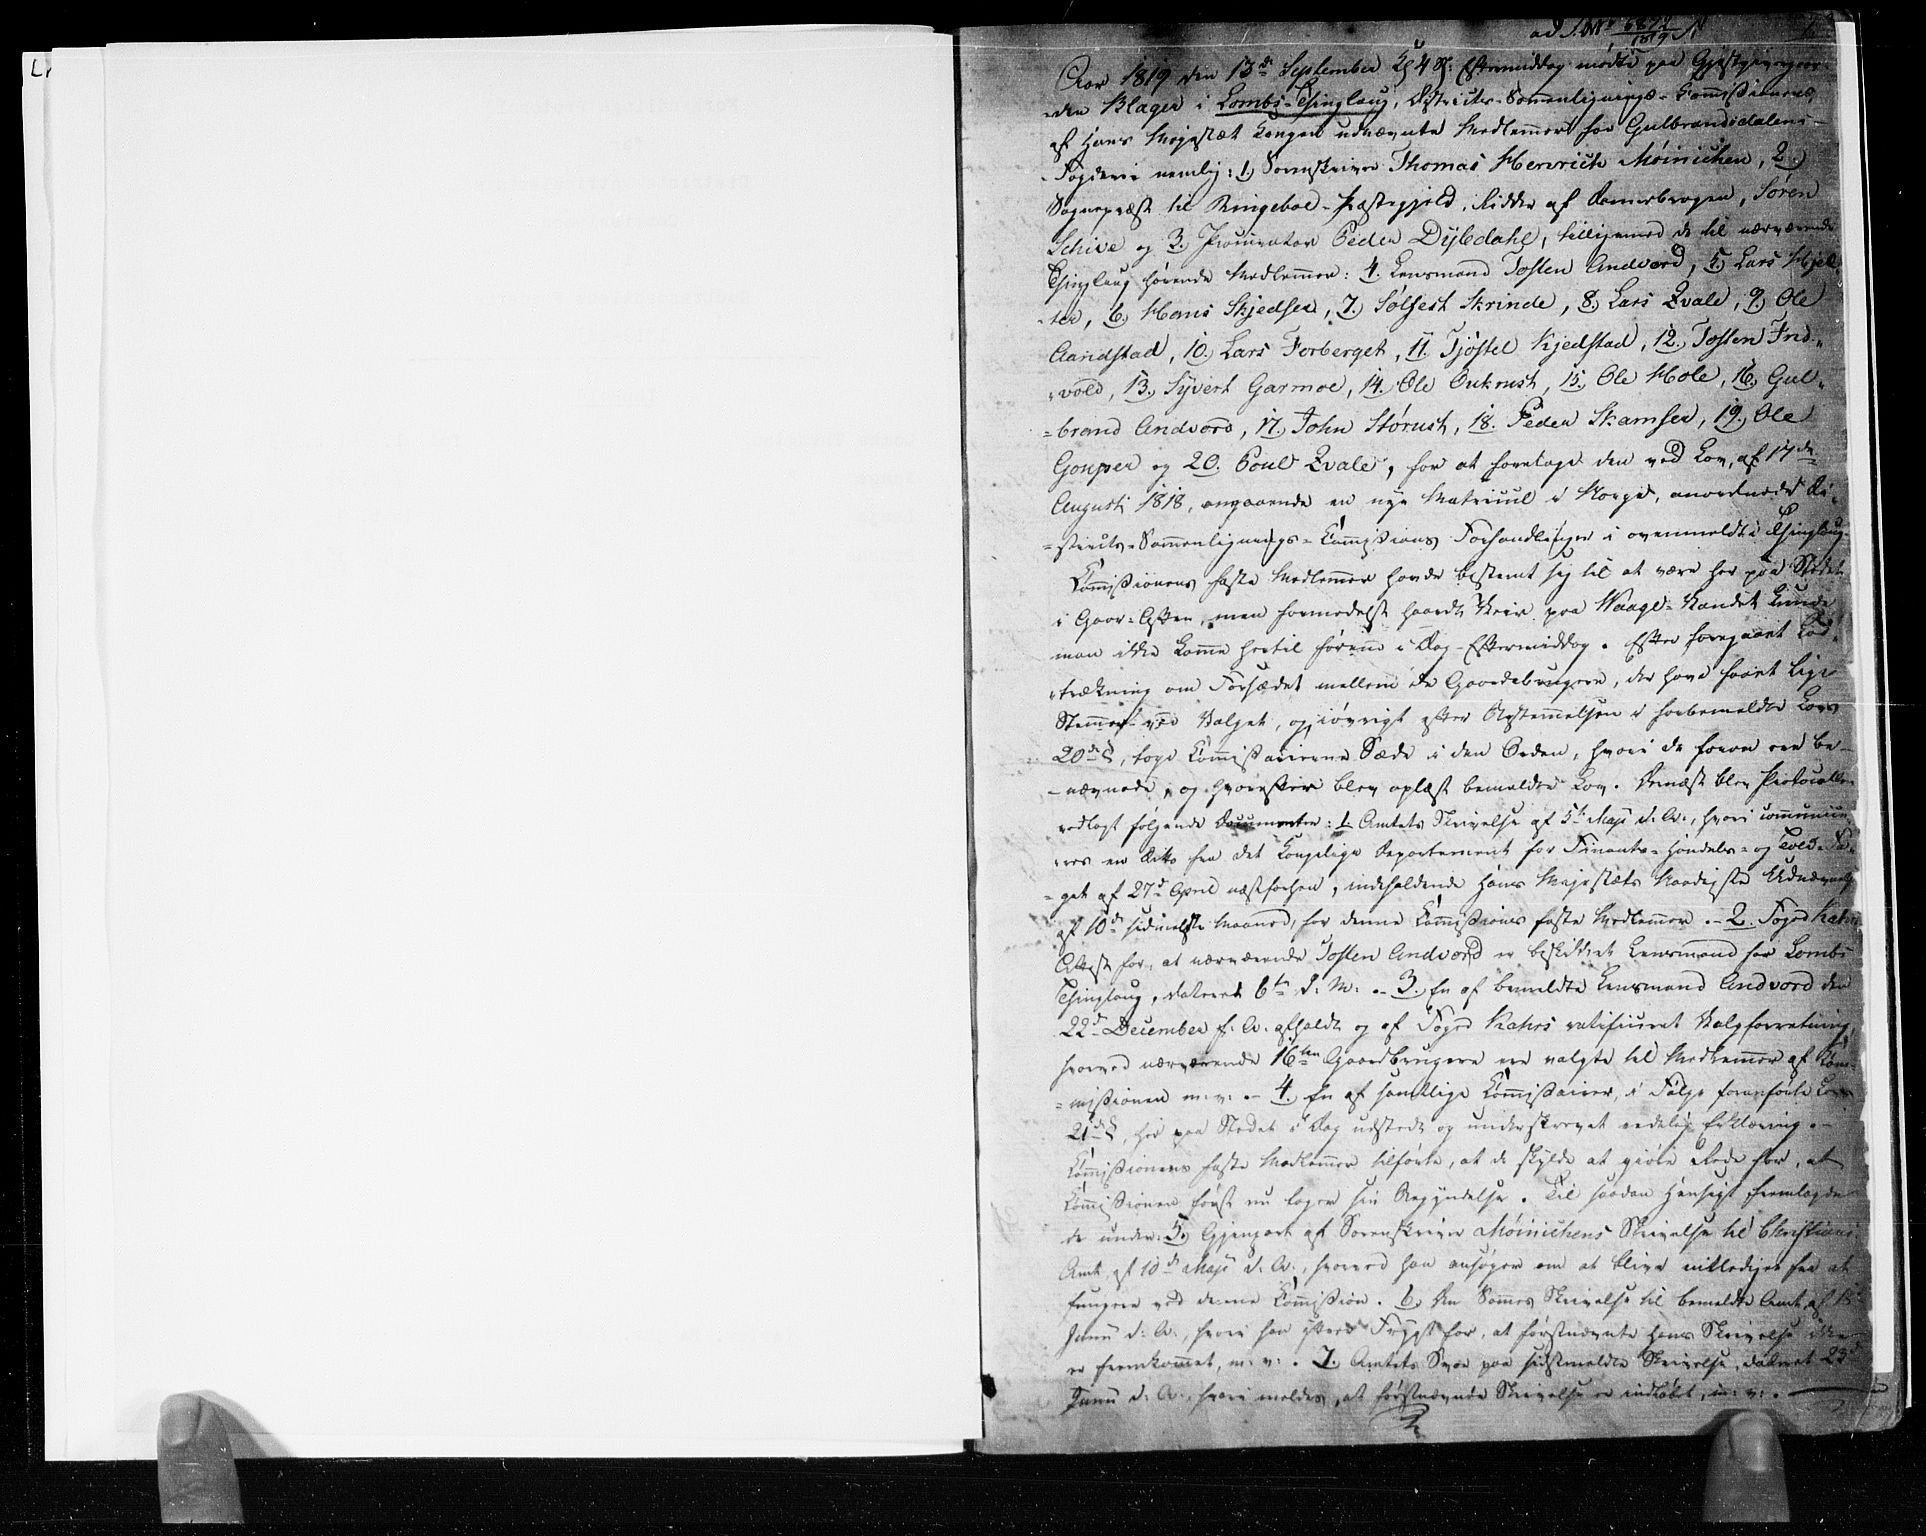 ad J. No 6874/1819 A
Aar 1819 den 13de September Kl 4 Sl. Eftermiddag mødte paa Gjæstgivergaar-
den Blager i Lombs-Thinglaug, Districts-Sammenlignings-Commissionens
af Hans Majestæt Kongen udnævnte Medlemmer for Gulbrandsdalens
Fogderie nemlig: 1.) Sorenskriver Thomas Henrich Møinichen, 2.)
Sognepræst til Ringeboe-Præstegjeld, Ridder af Dannebrogen, Søren
Schive og 3. Procurator Peder Dybdahl, tilligemed de til nærværende
Thinglaug hørende Medlemmer: 4. Lensmand Tosten Andvord, 5.) Lars Hjel-
ter, 6.) Hans Skjedser, 7.) Sølfest Skrinde, 8.) Lars Qvale, 9.) Ole
Aandstad, 10.) Lars Forberget, 11. Tjøstel Kjedstad, 12. Tosten Frid-
vold, 13.) Syvert Garmoe, 14. Ole Bukrust, 15. Ole Hole, 16.) Gul-
brand Andvord, 17.) John Størust, 18. Peder Skamser, 19.) Ole
Gouper og 20. Poul Qvale, for at foretage den ved Lov, af 17de
Augusti 1818, angaaende en nye Matricul i Norge, anordnede Di-
stricts-Sammenlignings-Commissions Forhandlinger i ovenmeldte Thinglaug.
Commissionens faste Medlemmer havde bestemt sig til at være her paa Stedet
i Gaar-Aften, men formedelst haardt Veir paa Waage-Vandet kunde
man ikke komme hertil førend i Dag-Eftermiddag. Efter foregaaet Lod-
trækning om Forsædet mellem de Gaardebrugere, der have faaet lige
Stemmer ved Valget, og iøvrigt efter Bestemmelsen i forbemeldte Lovs
20de §, toge Commissairerne Sæde i den Orden, hvori de foran ere be-
nævnede, og hvorefter blev oplæst bemeldte Lov. Dernæst blev Protocollen
vedlagt følgende Documenter: 1. Amtets Skrivelse af 5te Maji d: A:, hvori communice-
res en Ditto fra det Kongelige Departement for Finants- Handels- og Told-Fa-
get af 27de April næstforhen, indeholdende Hans Majestæts Naadigste Udnævnelse
af 10de sidmeldte Maaned, for denne Commissions faste Medlemmer. – 2. Foged Kahrs
Attest for, at nærværende Tosten Andvord er beskikket Lensmand for Lombs
Thinglaug, dateret 6te d: M: – 3. En af bemeldte Lensmand Andvord den
22de December f: A: afholdt og af Foged Kahrs ratificeret Valgforretning,
hvorved nærværende 16ten Gaardbrugere ere valgte til Medlemmer af Com-
missionen m: v: – 4. En af samtlige Commissairer, i Følge foranførte Lovs
21de §, her paa Stedet i Dag udstedt og underskrevet eedelig Erklæring. –
Commissionens faste Medlemmer tilførte, at de skylde at gjøre Rede for, at
Commissionen først nu tager sin Begyndelse. Til saadan Hensigt fremlagde
de under: 5.) Gjenpart af Sorenskriver Møinichens Skrivelse til Christians
Amt, af 10de Maji d: A:, hvorved han ansøger om at blive entlediget fra at
fungere ved denne Commission. 6. Do Sammes Skrivelse til bemeldte Amt, af 15de
Junii d: A:, hvori han yttrer Frygt for, at førstnævnte hans Skrivelse ikke
er fremkommet, m: v: . 7. Amtets Svar paa sidstmeldte Skrivelse, dateret 23de
Junii d: A:, hvori meldes, at førstnævnte Skrivelse er indløbet, m: v: . –